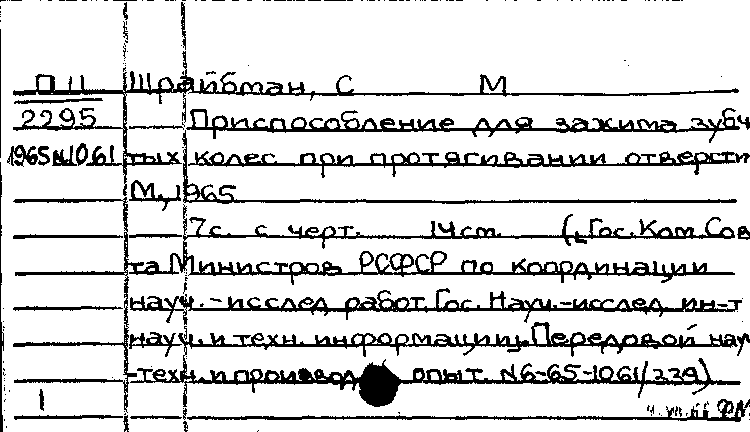 П 11 Шрайбман, С М
2295 Приспособление для зажима зубч
1965 N1061 тых колес при протягивании отверсти
М., 1965
7с. с черт. 14см. (Гос. Ком. Сов
та Министров РСФСР по координации
науч.-исслед работ. Гос. Науч.-исслед ин-т
науч. и техн. информации. Передовой нау
-техн. и производ опыт. N6-65-1061/239)
1